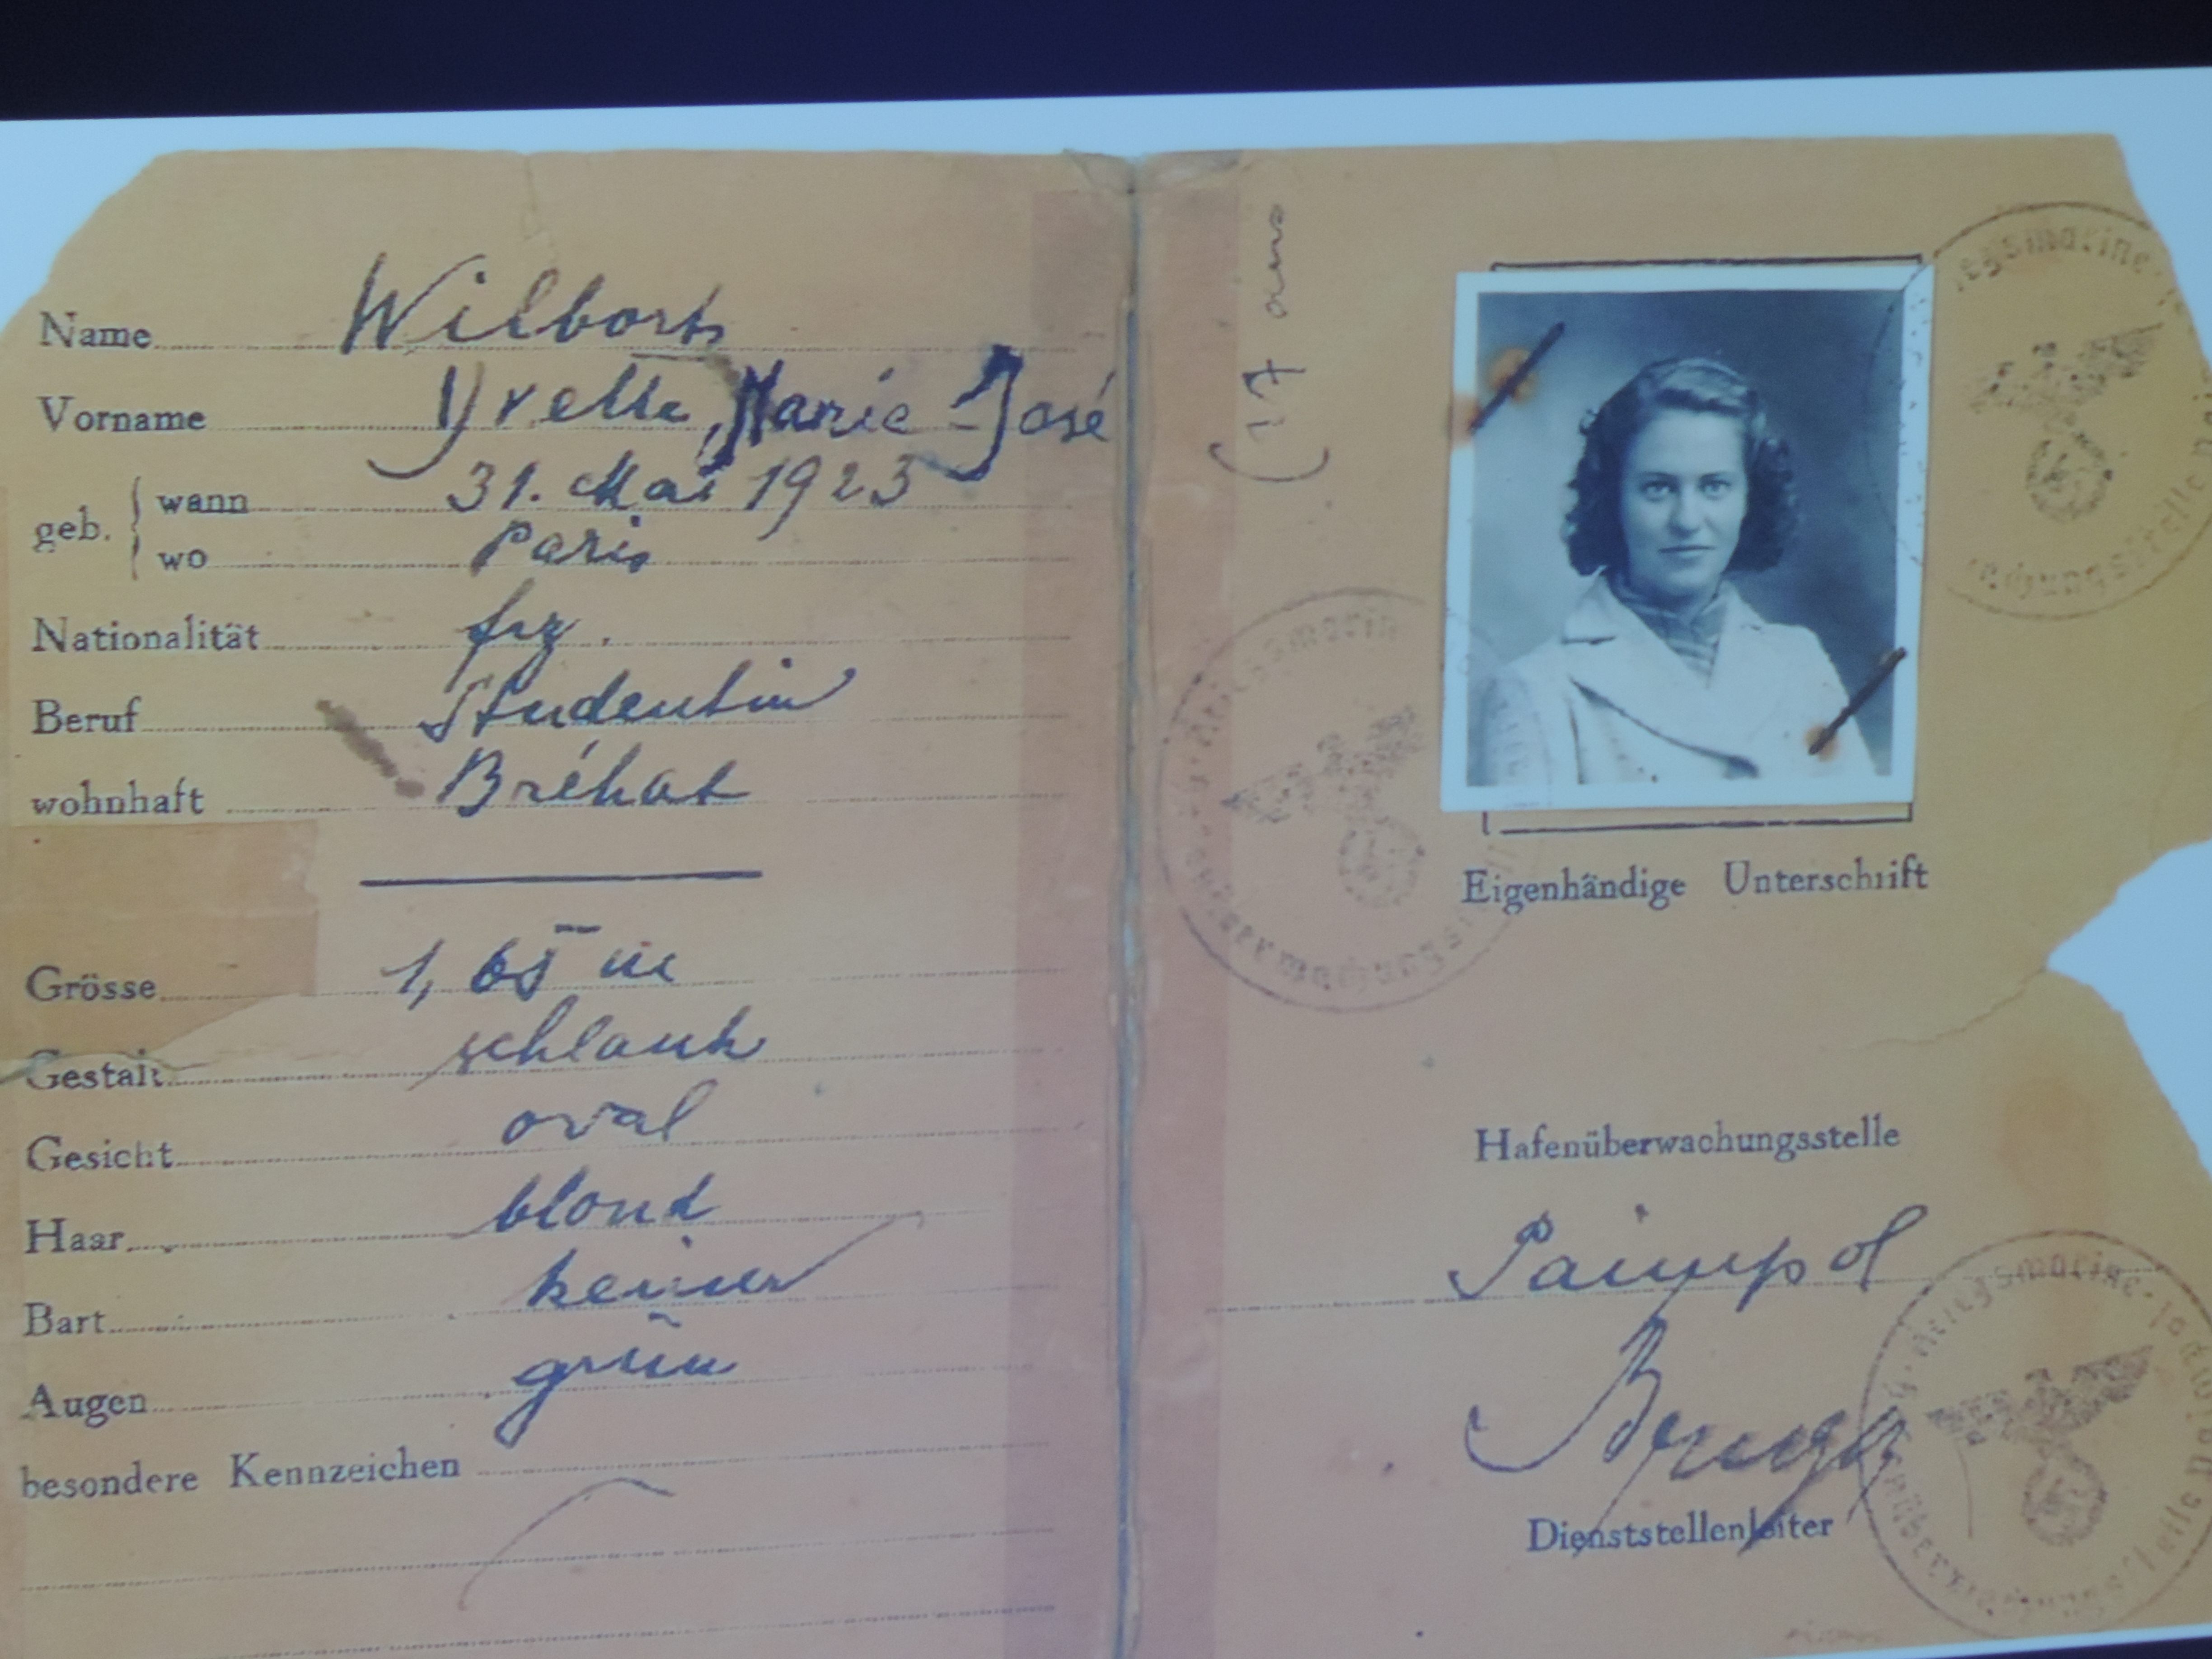 Name Wilborts
Vorname Yvette, Marie-José
geb. { wann 31. Mai 1923
wo Paris
Nationalität frz.
Beruf Studentin
wohnhaft Bréhat
Grösse 1,65 m
Gestalt schlank
Gesicht oval
Haar blond
Bart keiner
Augen grün
besondere Kennzeichen
(17 ans
Eigenhändige Unterschrift
Hafenüberwachungsstelle
Paimpol
Dienststellenleiter